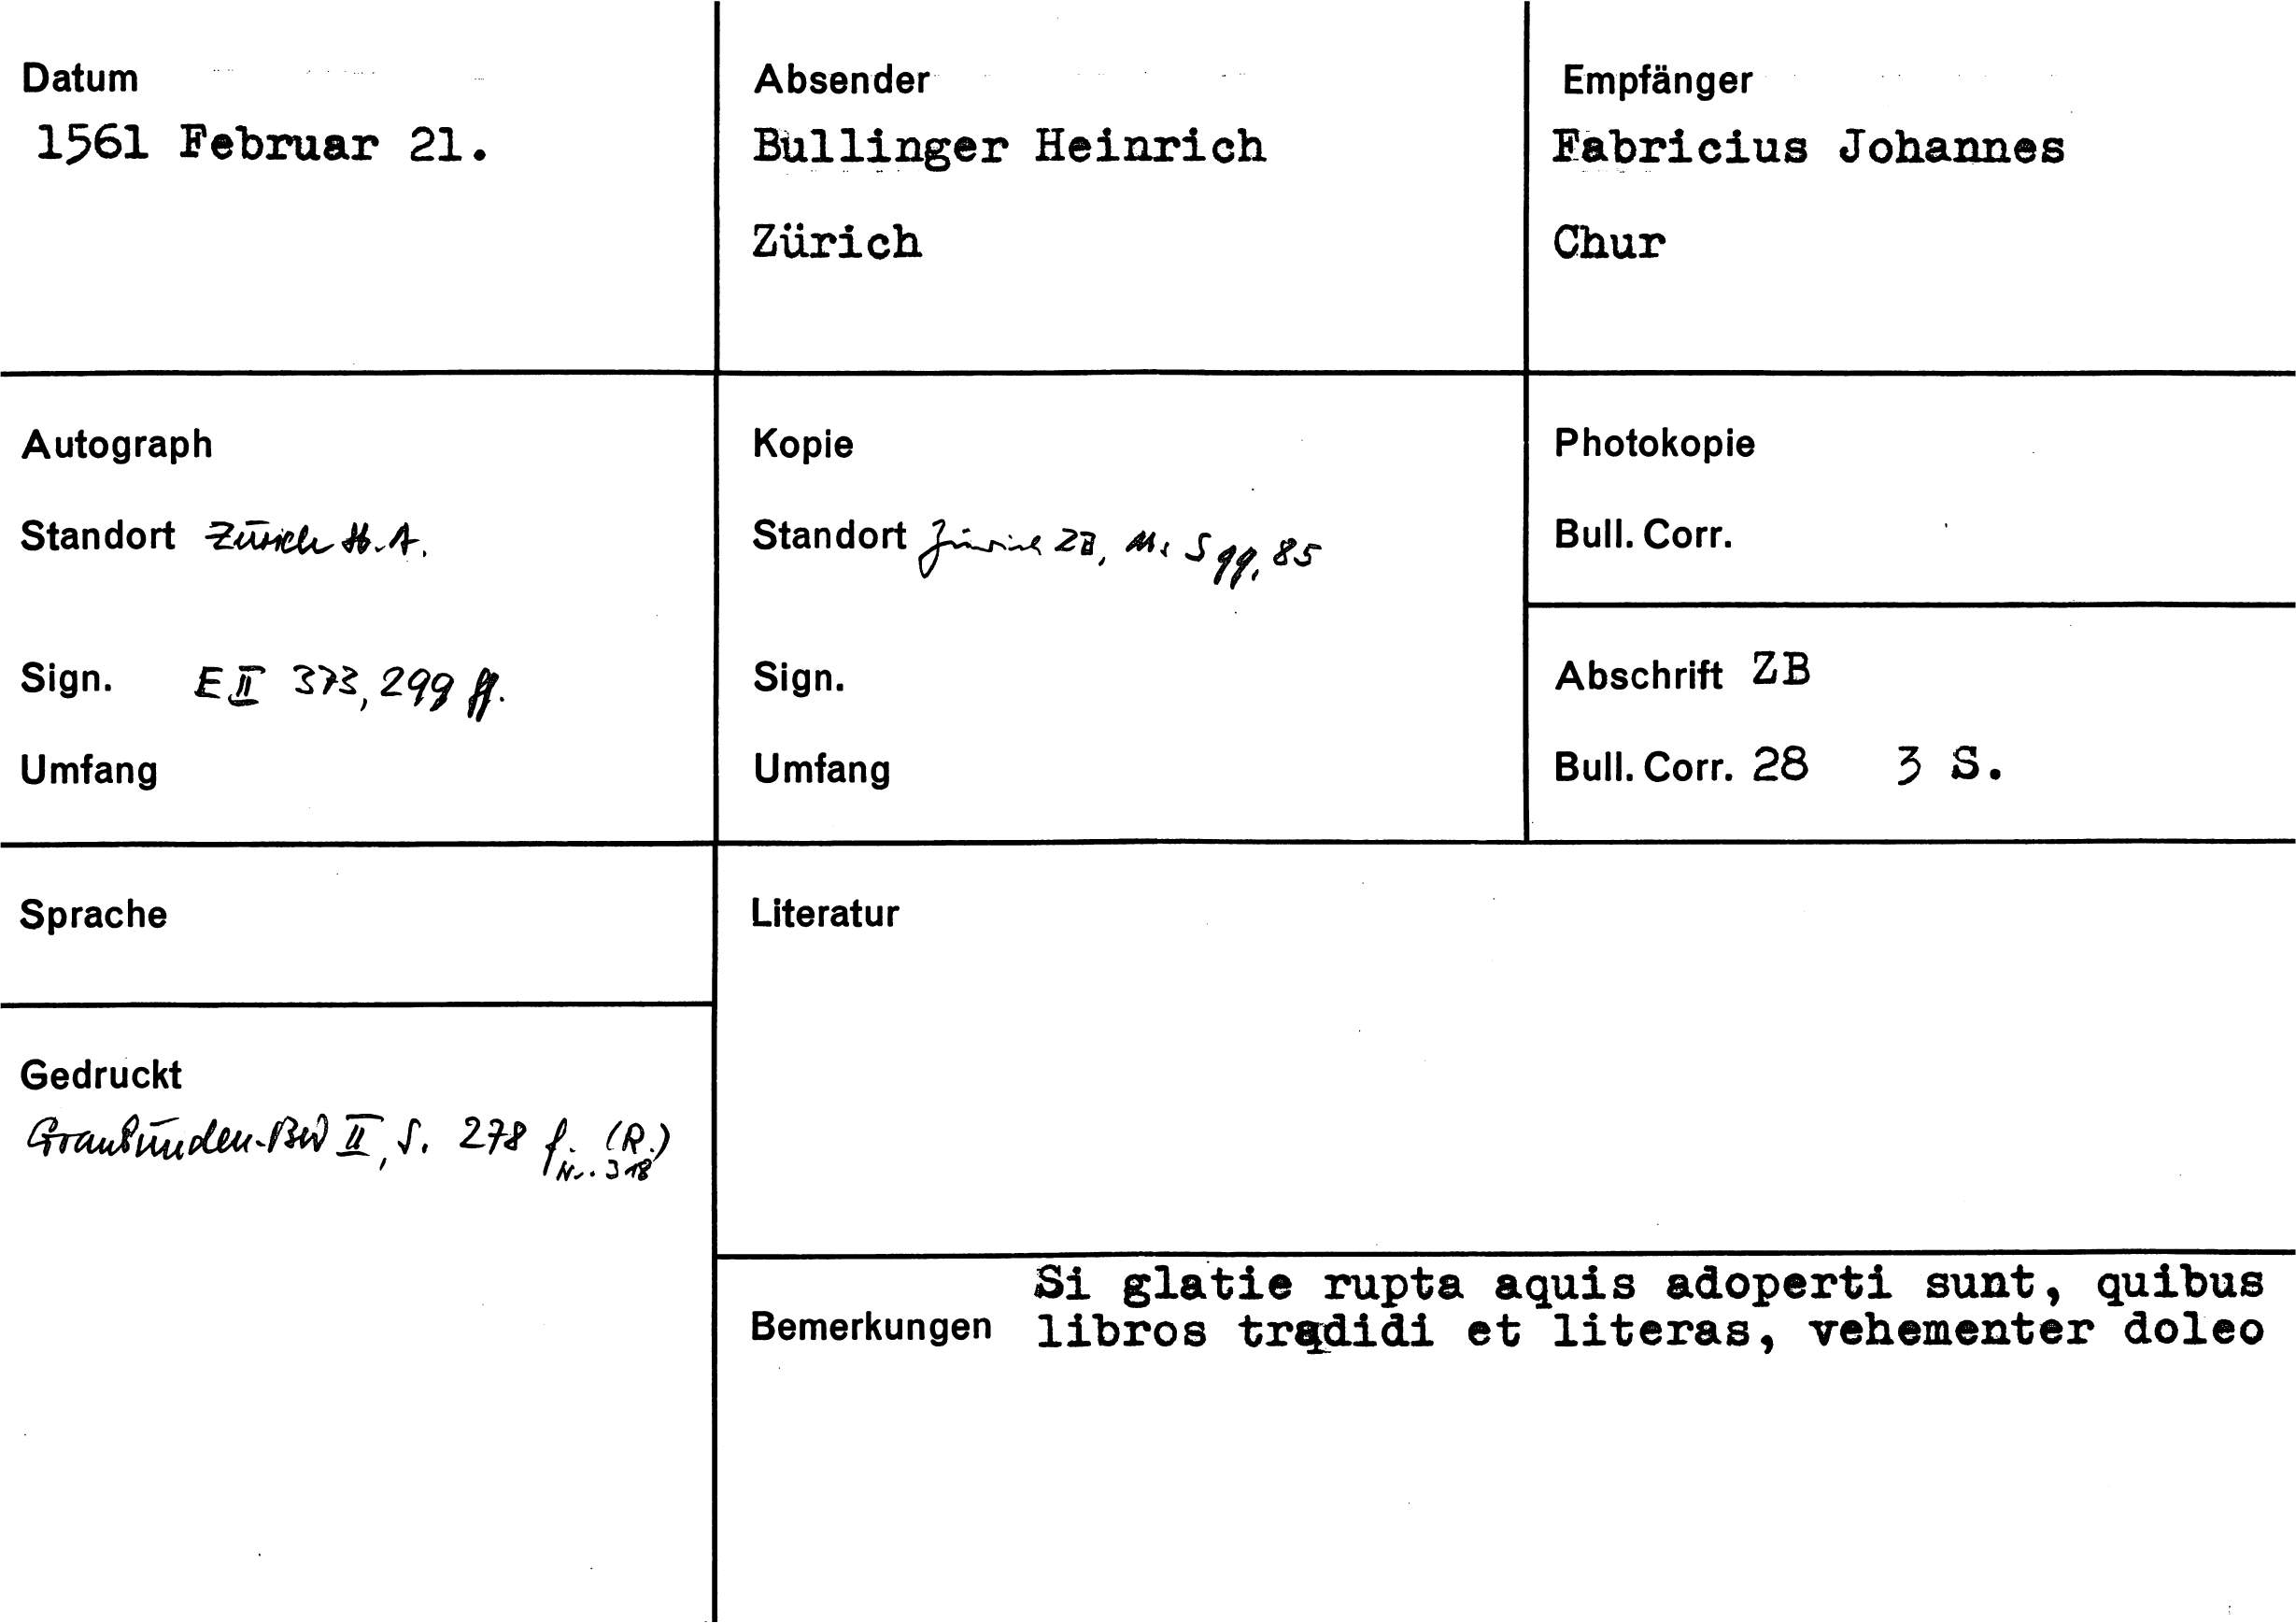 Datum
1561 Februar 21.
Absender
Bullinger Heinrich
Zürich
Empfänger
Fabricius Johannes
Chur
Autograph
Standort Zürich St.A.
Sign. E II 373, 299 ff.
Umfang
Kopie
Standort Zürich ZB, Ms S 99, 85
Sign.
Umfang
Photokopie
Bull. Corr.
Abschrift ZB
Bull. Corr. 28 3 S.
Sprache
Gedruckt
Graubünden-BW II, S. 278 f. (R.)
Nr. 318
Literatur
Bemerkungen
Si glatie rupta aquis adoperti sunt, quibus
libros tradidi et literas, vehementer doleo